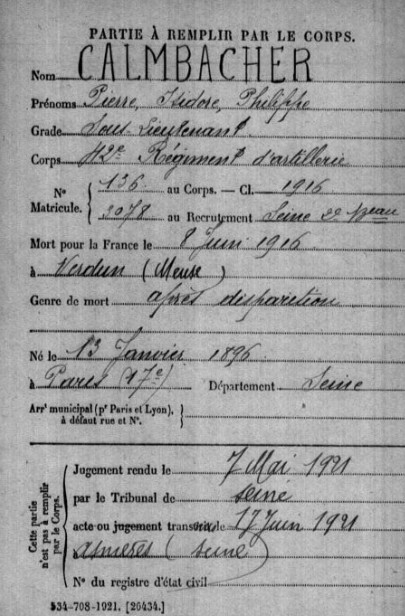 PARTIE À REMPLIR PAR LE CORPS.
Nom CALMBACHER
Prénoms Pierre, Isidore, Philippe
Grade Sous-Lieutenant
Corps 42e Régiment d'artillerie
No Matricule. 136 au Corps. — Cl. 1916
2078 au Recrutement Seine 2e Beau
Mort pour la France le 8 Juin 1916
à Verdun (Meuse)
Genre de mort après disparition
Né le 13 Janvier 1896
à Paris (17e) Département Seine
Arrt municipal (pr Paris et Lyon), à défaut rue et No.
Cette partie n'est pas à remplir par le Corps.
Jugement rendu le 7 Mai 1921
par le Tribunal de Seine
acte ou jugement transcrit le 17 Juin 1921
Asnières (Seine)
No du registre d'état civil
534-708-1921. [26434.]